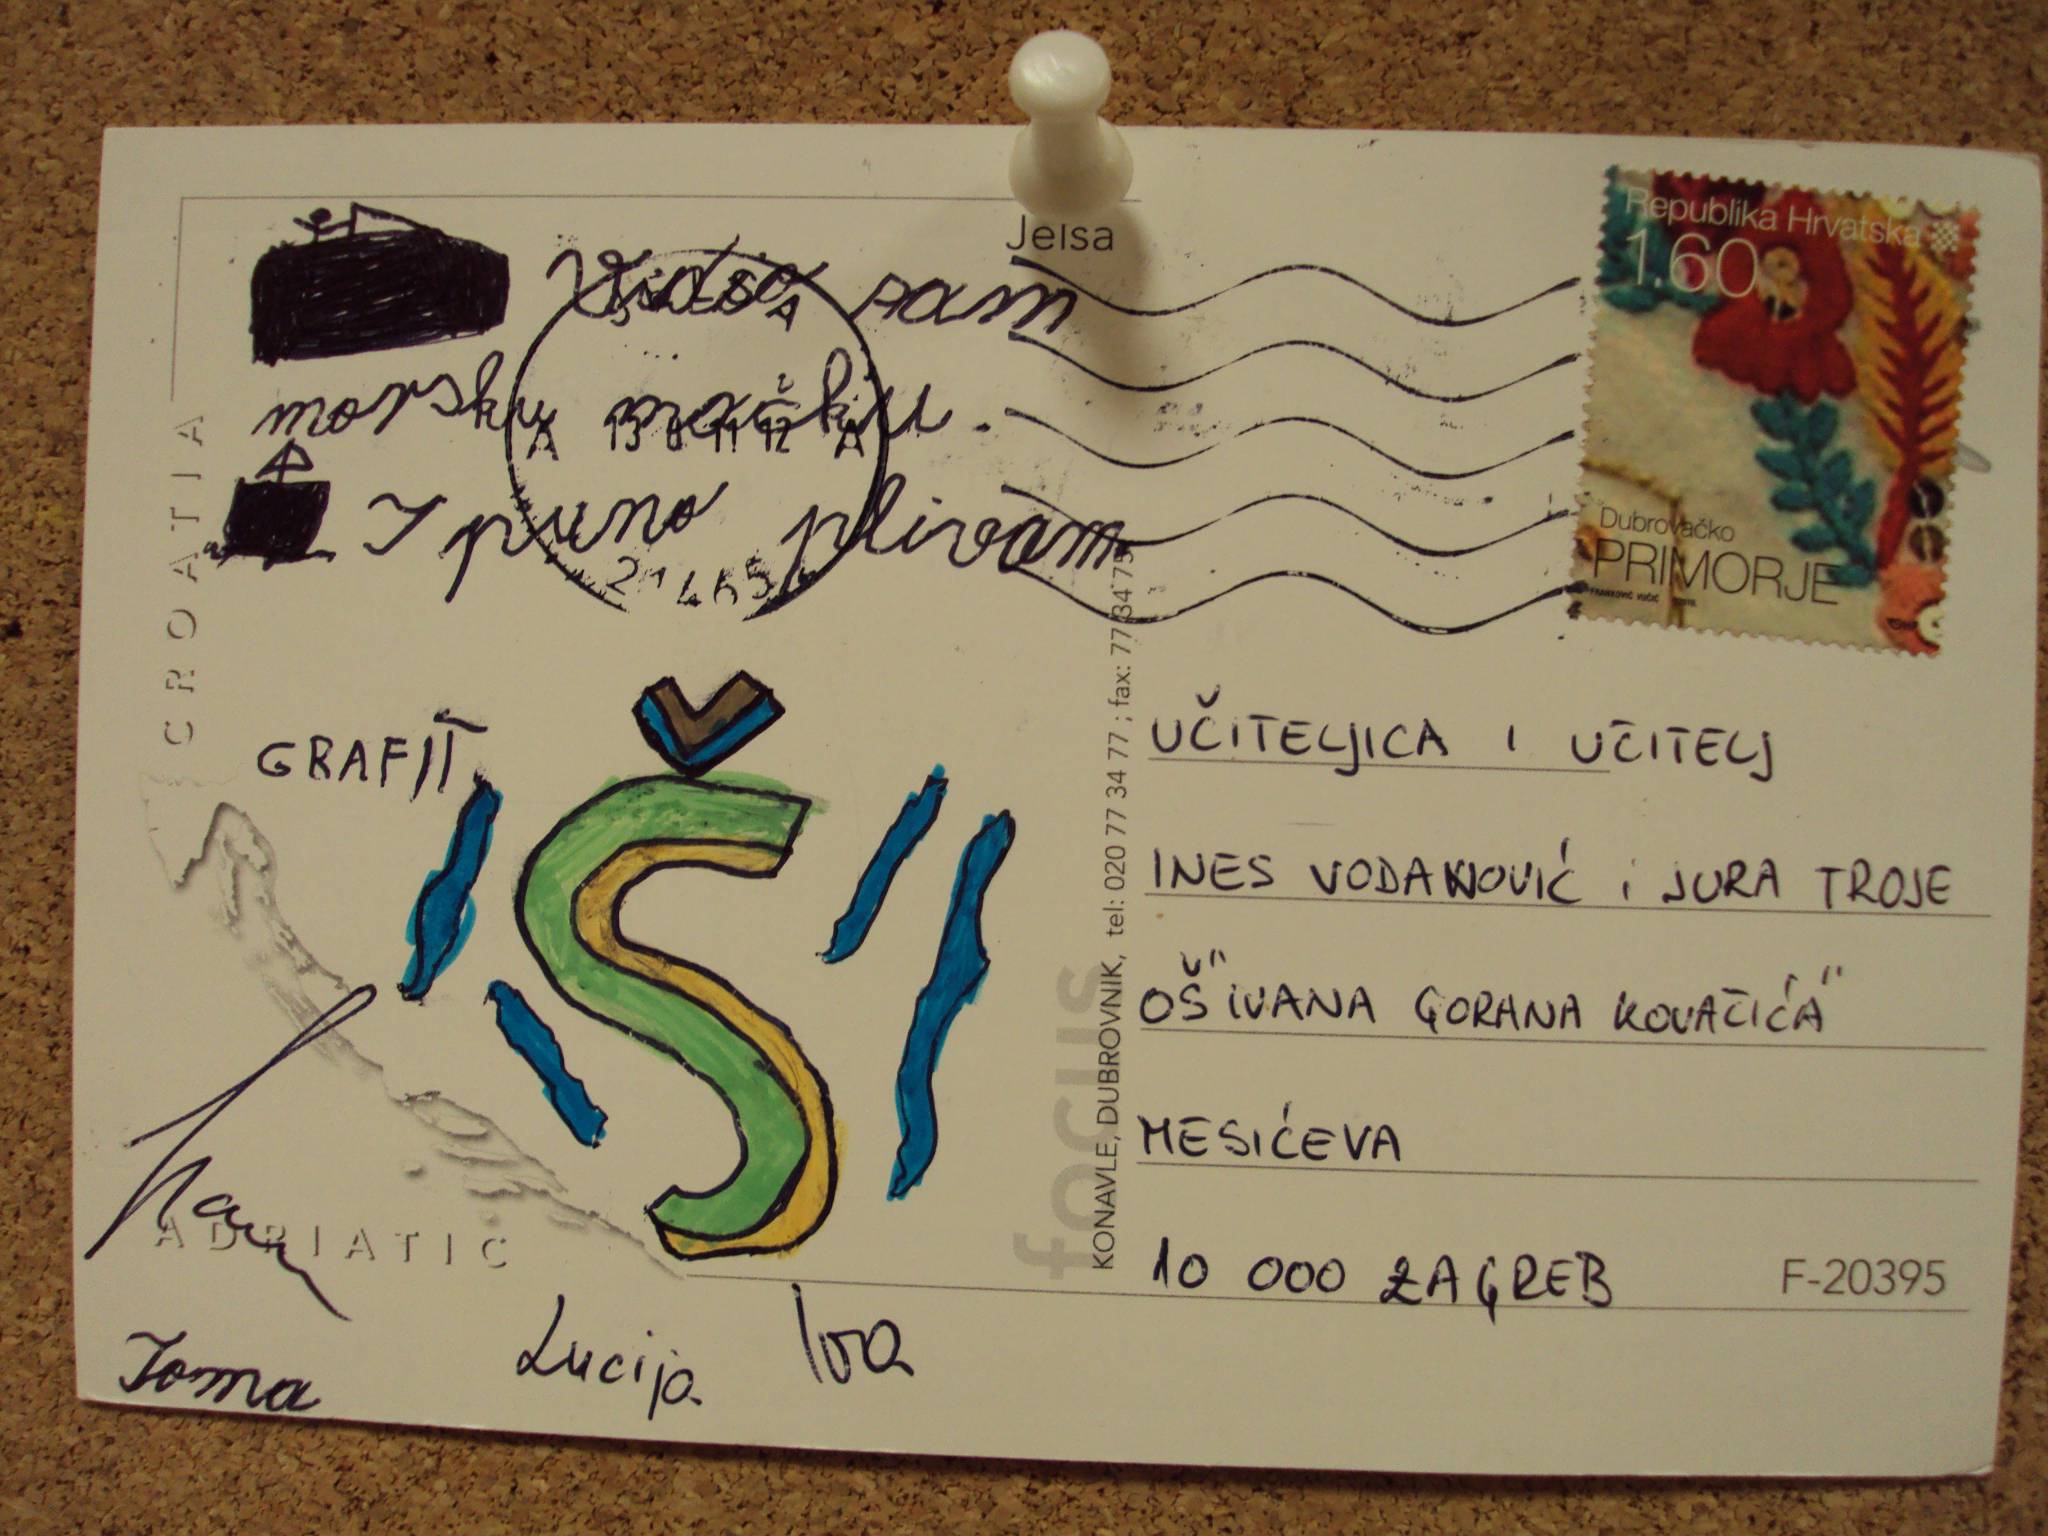 Jelsa
Vidio sam
morsku mačku.
I puno plivam
GRAFIT
Š
Toma
Lucija
Iva
CROATIA
ADRIATIC
JELSA
A 13 8 11 12 A
21465
Republika Hrvatska
1.60
Dubrovačko
PRIMORJE
focus
KONAVLE, DUBROVNIK, tel: 020 77 34 77; fax: 77 34 75
UČITELJICA I UČITELJ
INES VODANOVIĆ i JURA TROJE
OŠ "IVANA GORANA KOVAČIĆA"
MESIĆEVA
10 000 ZAGREB
F-20395